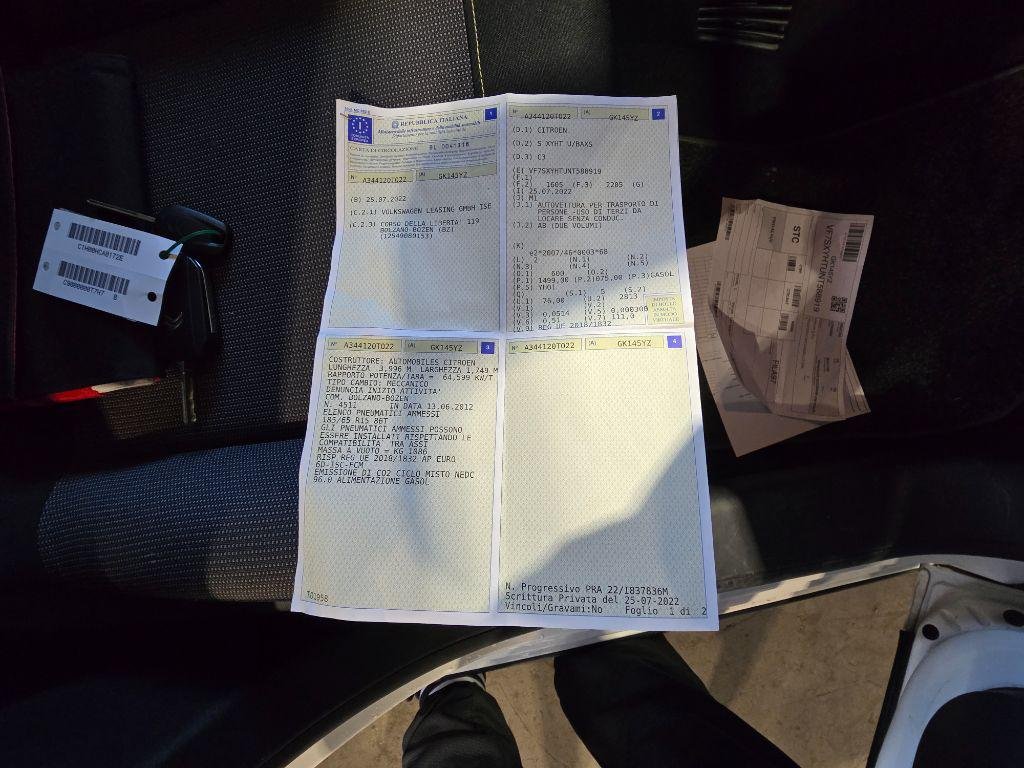 REPUBBLICA ITALIANA
CARTA DI CIRCOLAZIONE
1
N° A344120TO22 (A) GK145YZ
(B) 25.07.2022
(C.2.1) VOLKSWAGEN LEASING GMBH ISE
(C.2.3) CORSO DELLA LIBERTA' 119
BOLZANO-BOZEN (BZ)
(12549080153)
N° A344120TO22 (A) GK145YZ 2
(D.1) CITROEN
(D.2) S XYHT U/BAXS
(D.3) C3
(E) VF7SXYHTUNT580919
(F.1)
(F.2) 1605 (F.3) 2205 (G)
(I) 25.07.2022
(J) M1
(J.1) AUTOVETTURA PER TRASPORTO DI
PERSONE -USO DI TERZI DA
LOCARE SENZA CONDUC.
(J.2) AB (DUE VOLUMI)
(K)
e2*2007/46*0003*68
(L) 2 (N.1) (N.2)
(N.3) (N.4) (N.5)
(O.1) 600 (O.2)
(P.1) 1499,00 (P.2)075.00 (P.3)GASOL
(P.5) YH01
(S.1) 5 (S.2)
(U.1) 76,00 (U.2) 2813
(V.1)
(V.3) 0,0514 (V.5) 0,000300
(V.6) 0,51 (V.7) 111,0
(V.9) REG UE 2018/1832
IMPOSTA
DI BOLLO
ASSOLTA
IN MODO
VIRTUALE
N° A344120TO22 (A) GK145YZ 3
COSTRUTTORE: AUTOMOBILES CITROEN
LUNGHEZZA 3,996 M LARGHEZZA 1,749 M
RAPPORTO POTENZA/TARA = 64,599 KW/T
TIPO CAMBIO: MECCANICO
DENUNCIA INIZIO ATTIVITA'
COM. BOLZANO-BOZEN
N. 4511 IN DATA 13.06.2012
ELENCO PNEUMATICI AMMESSI
185/65 R15 88T
GLI PNEUMATICI AMMESSI POSSONO
ESSERE INSTALLATI RISPETTANDO LE
COMPATIBILITA' TRA ASSI
MASSA A VUOTO = KG 1086
RISP REG UE 2018/1832 AP EURO
6D-ISC-FCM
EMISSIONE DI CO2 CICLO MISTO NEDC
96.0 ALIMENTAZIONE GASOL
N° A344120TO22 (A) GK145YZ 4
N. Progressivo PRA 22/I837836M
Scrittura Privata del 25-07-2022
Vincoli/Gravami:No Foglio 1 di 2
STC
GK145YZ